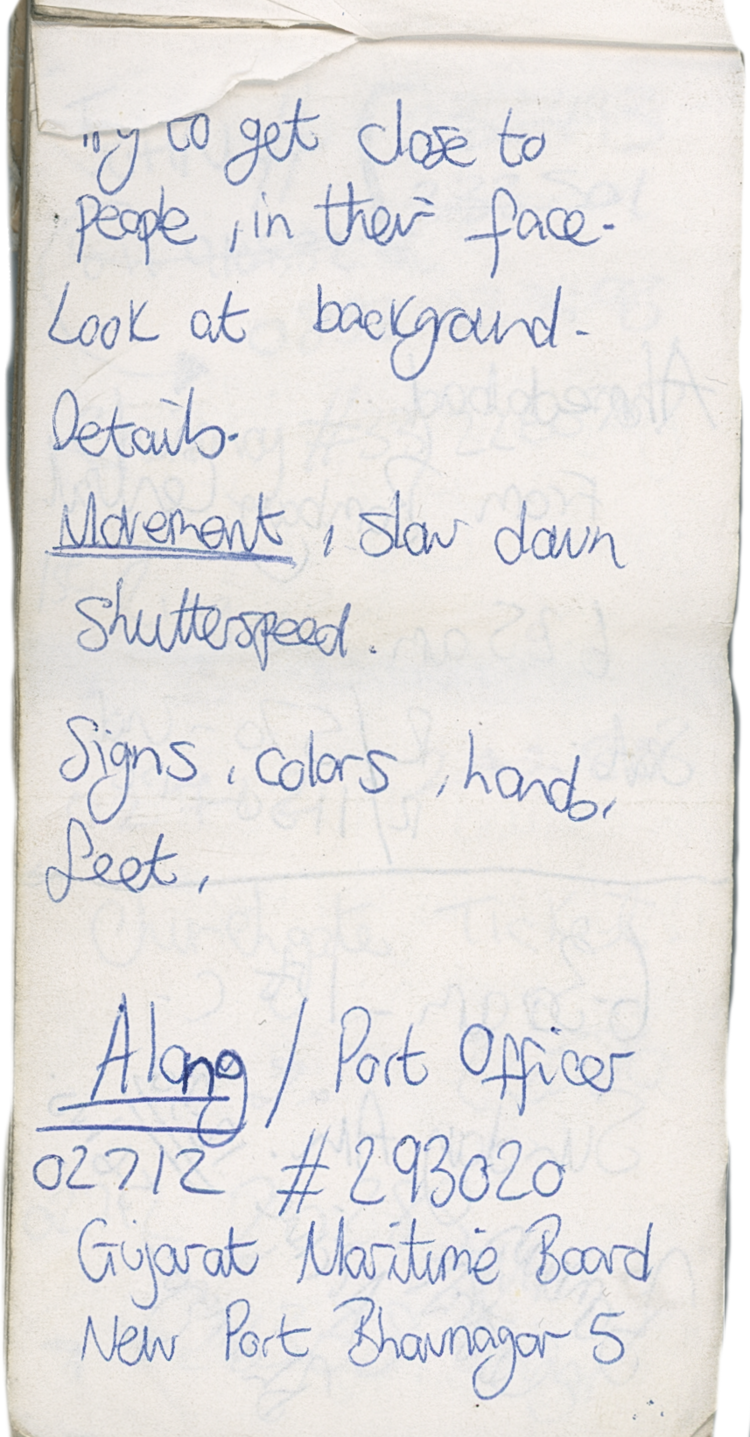 Try to get close to
people, in their face.
Look at background.
Details.
Movement, slow down
shutterspeed.
Signs, colors, hands,
feet,
Alang / Port Officer
02712 #293020
Gujarat Maritime Board
New Port Bhavnagar 5